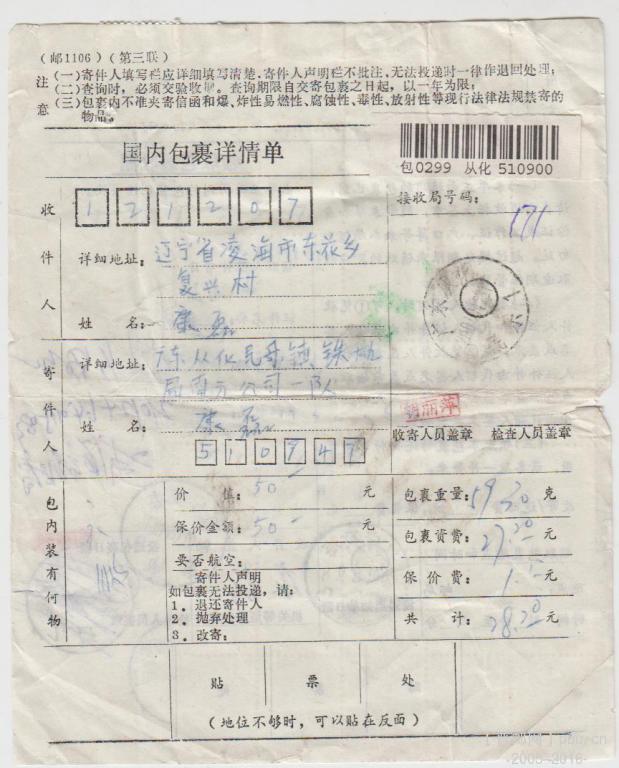 (邮1106)(第三联)
注意
(一)寄件人填写栏应详细填写清楚,寄件人声明栏不批注,无法投递时一律作退回处理;
(二)查询时,必须交验收据。查询期限自交寄包裹之日起,以一年为限;
(三)包裹内不准夹寄信函和爆、炸性易燃性、腐蚀性、毒性、放射性等现行法律法规禁寄的
物品。
国内包裹详情单
包0299 从化 510900
接收局号码:
171
收件人
121207
详细地址:辽宁省凌海市东花乡
复兴村
姓 名:康磊
寄件人
详细地址:广东从化民乐镇铁九
局南方公司一队
姓 名:康磊
510947
胡丽萍
收寄人员盖章 检查人员盖章
包内装有何物
价 值:50 元
保价金额:50 元
要否航空:
寄件人声明
如包裹无法投递,请:
1.退还寄件人
2.抛弃处理
3.改寄:
包裹重量:5920 克
包裹资费:27.20 元
保 价 费:1. 元
共 计:28.20 元
贴 票 处
(地位不够时,可以贴在反面)